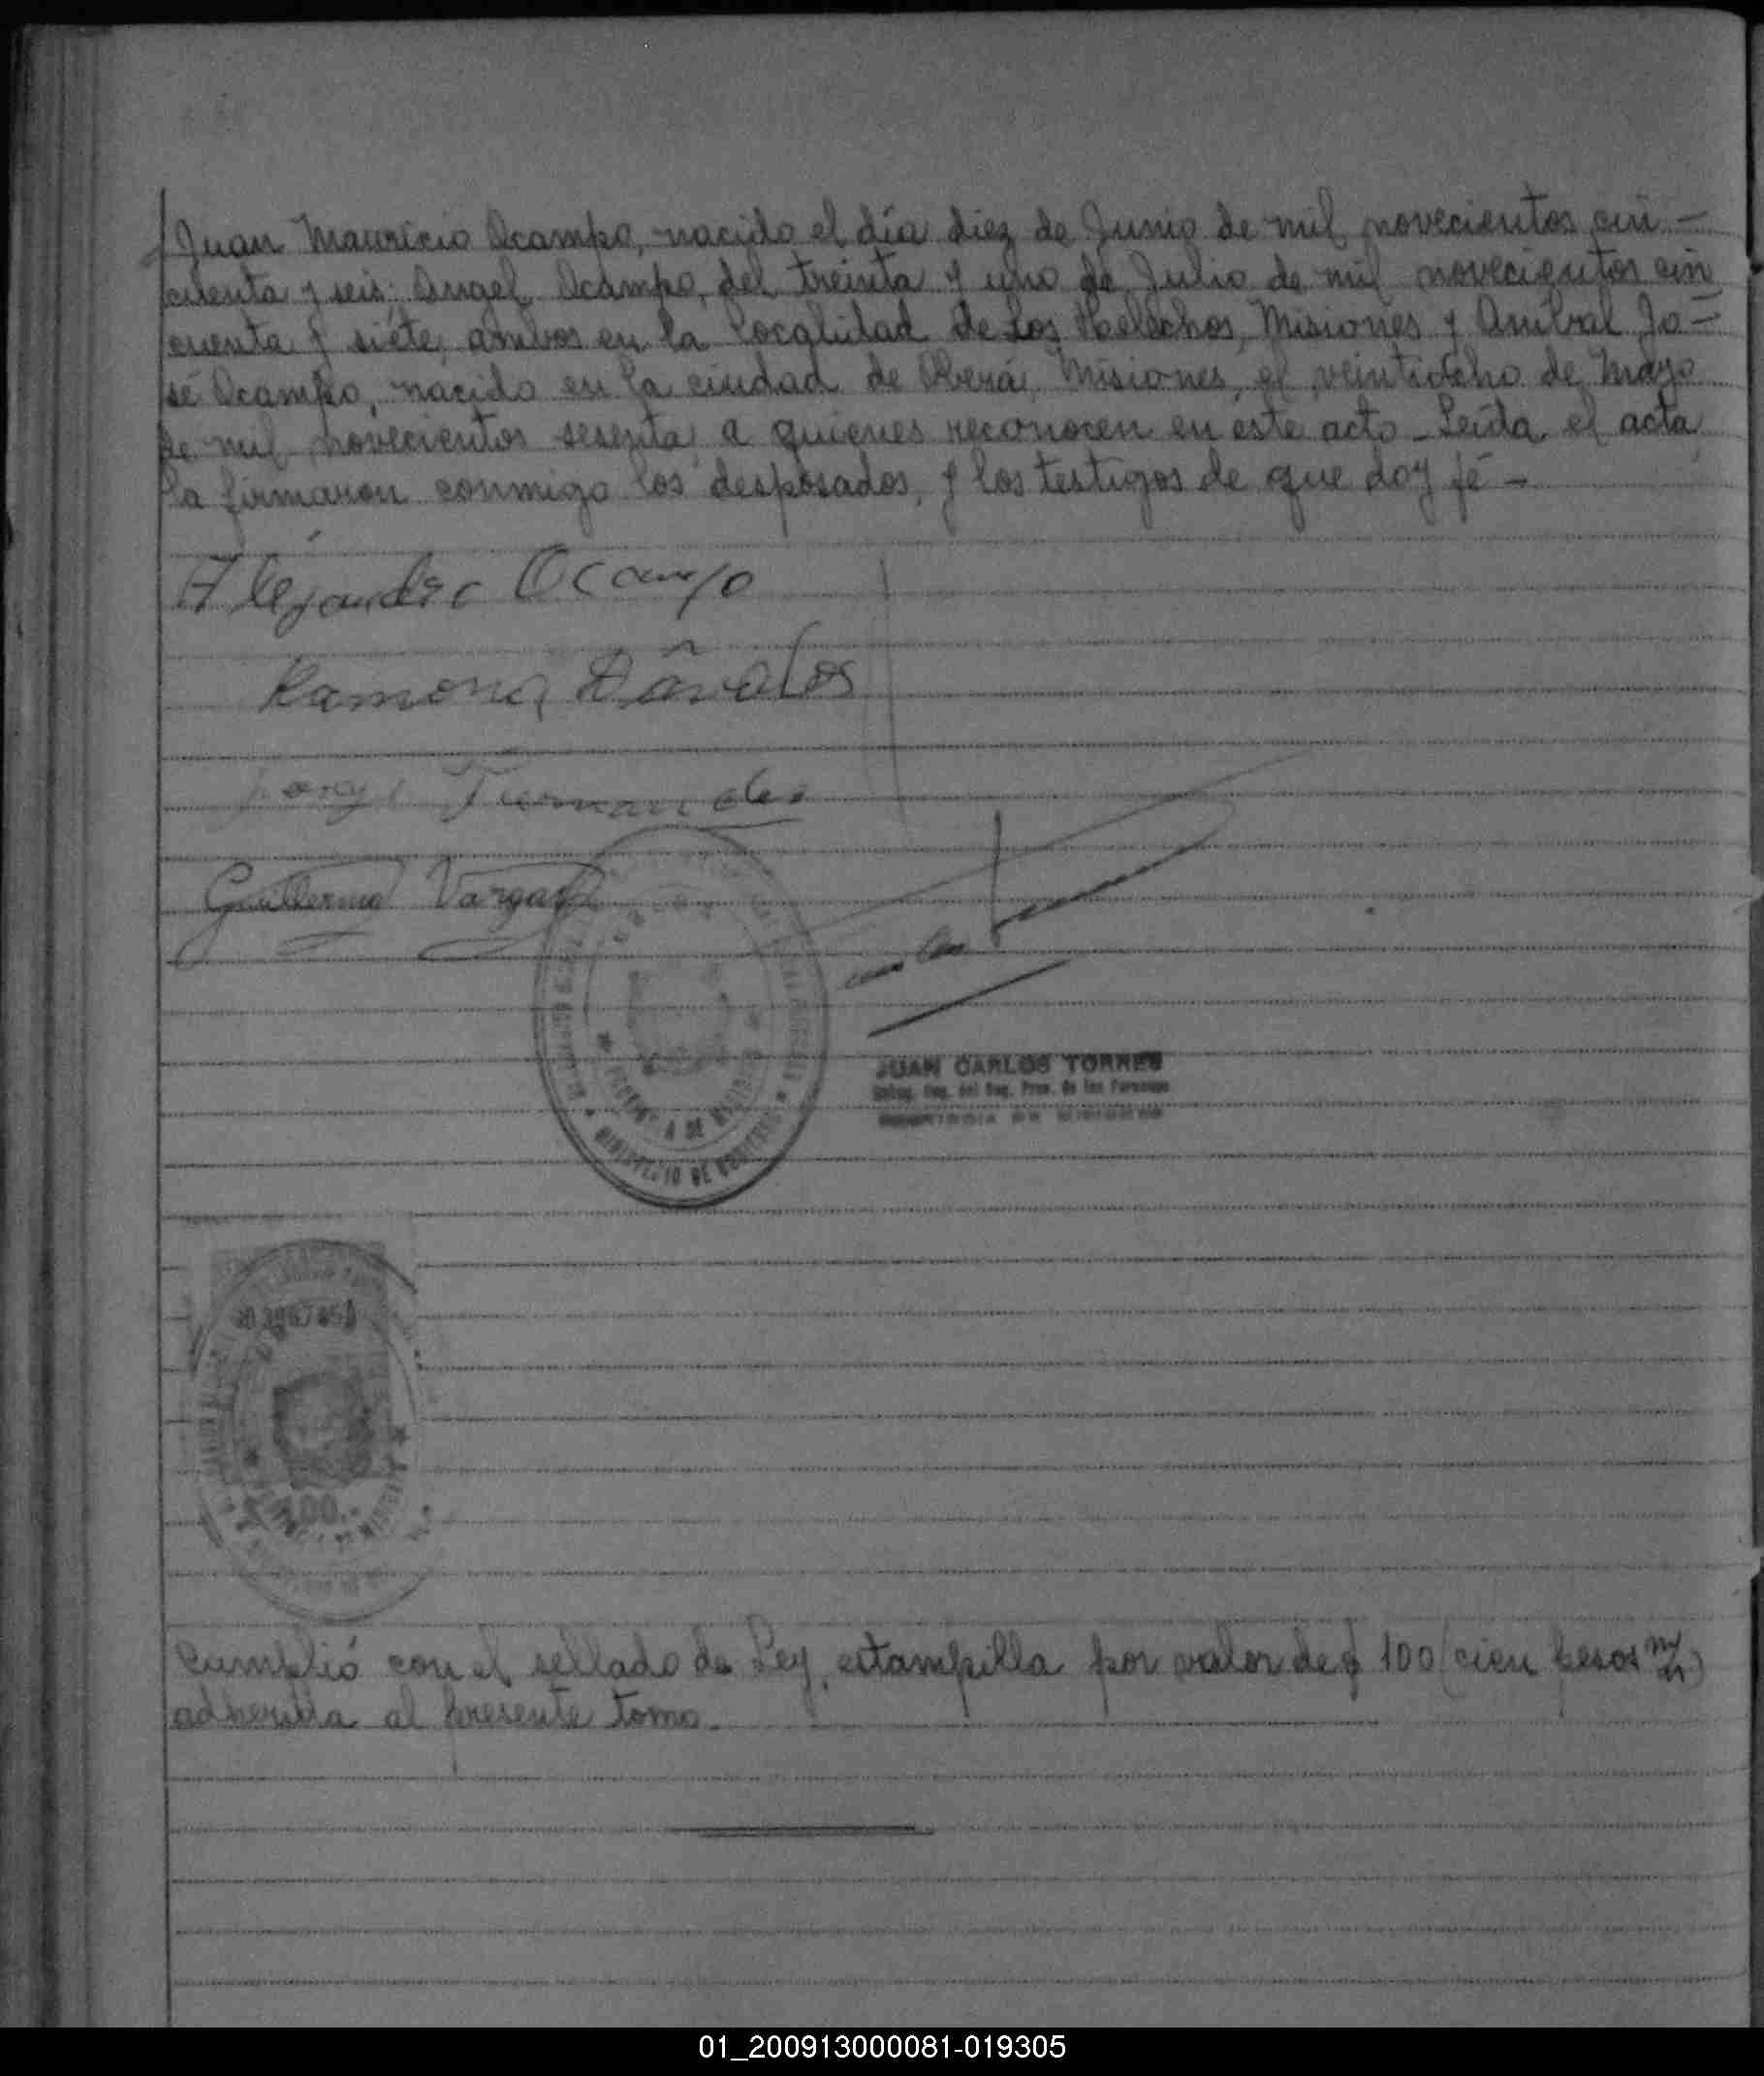 Juan Mauricio Ocampo, nacido el día diez de Junio de mil novecientos cin-
cuenta y seis; Angel Ocampo, del treinta y uno de Julio de mil novecientos cin
cuenta y siete, ambos en la localidad de Los Helechos, Misiones y Anibal Jo-
sé Ocampo, nacido en la ciudad de Oberá, Misiones, el veintiocho de Mayo
de mil novecientos sesenta, a quienes reconocen en este acto - Leída el acta,
la firmaron conmigo los desposados, y los testigos de que doy fé -
Alejandro Ocampo
Ramona Dávalos
Guillermo Vargas
PROVINCIA DE MISIONES
MINISTERIO DE GOBIERNO
JUAN CARLOS TORRES
del Reg. Prov. de las Personas
100.-
Cumplió con el sellado de Ley, estampilla por valor de $ 100 (cien pesos m/n)
adherida al presente tomo.
01_200913000081-019305